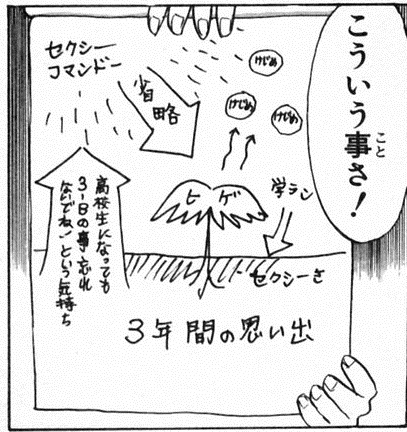 こういう事さ！
こと
セクシー
コマンドー
省略
けじめ
けじめ
けじめ
ヒゲ
学ラン
セクシーさ
高校生になっても
3-Bの事忘れ
ないでね！という気持ち
3年間の思い出